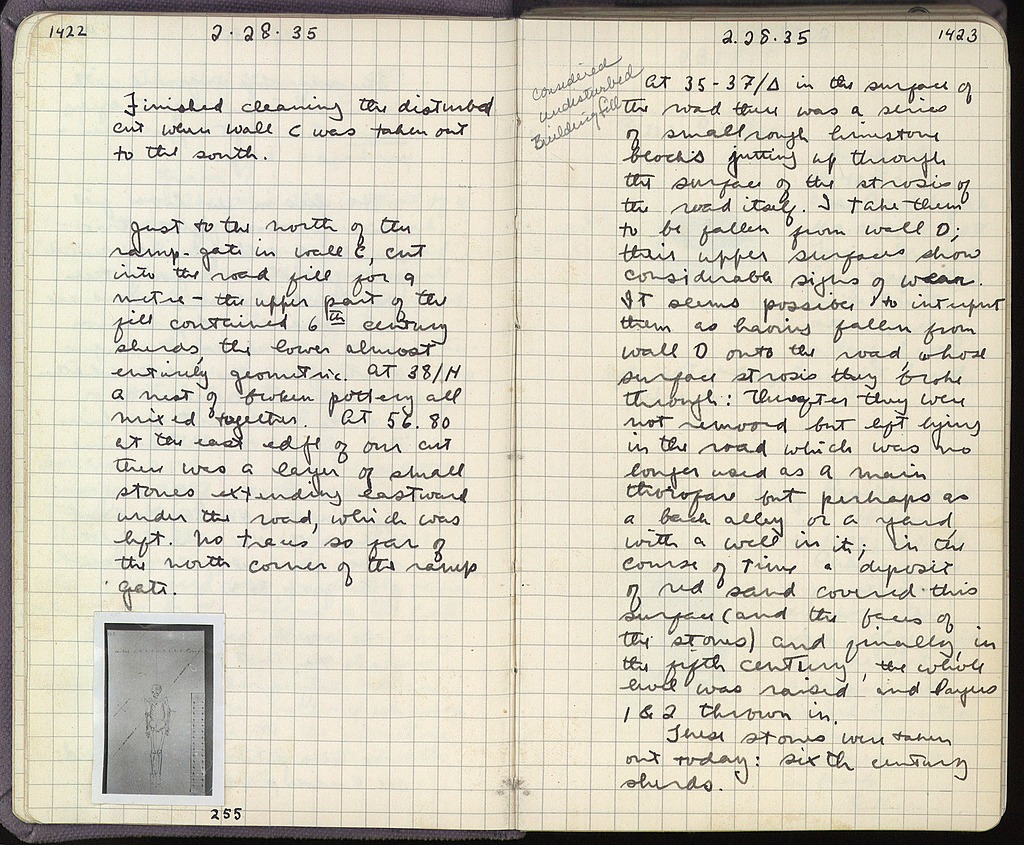 1422
2·28·35
Finished cleaning the disturbed
cut when wall C was taken out
to the south.
Just to the north of the
ramp-gate in wall C, cut
into the road fill for a
metre - the upper part of the
fill contained 6th century
sherds, the lower almost
entirely geometric. At 38/H
a nest of broken pottery all
mixed together. At 56.80
at the east edge of our cut
there was a layer of small
stones extending eastward
under the road, which was
left. No traces so far of
the north corner of the ramp
gate.
255
2.28.35
1423
considered
undisturbed
Building fill
At 35-37/Δ in the surface of
the road there was a series
of small rough limestone
blocks jutting up through
the surface of the strosis of
the road itself. I take them
to be fallen from wall D;
their upper surfaces show
considerable signs of wear.
It seems possible to interpret
them as having fallen from
wall D onto the road, whose
surface strosis they broke
through: Thereafter they were
not removed but left lying
in the road which was no
longer used as a main
thorofare but perhaps as
a back alley or a yard,
with a well in it; in the
course of time a deposit
of red sand covered this
surface (and the faces of
the stones) and finally, in
the fifth century, the whole
level was raised and layers
1 & 2 thrown in.
These stones were taken
out today: sixth century
sherds.